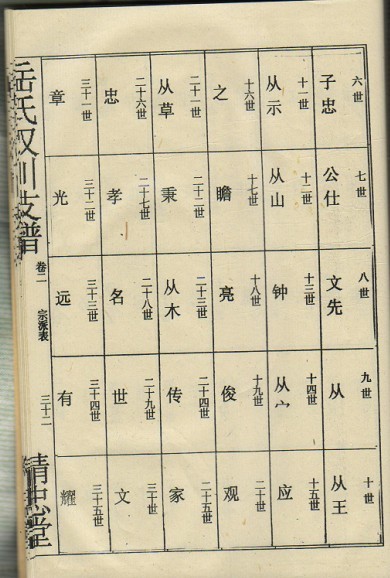 六世
子忠
七世
公仕
八世
文先
九世
从
十世
从王
十一世
从示
十二世
从山
十三世
钟
十四世
从宀
十五世
应
十六世
之
十七世
瞻
十八世
亮
十九世
俊
二十世
观
二十一世
从草
二十二世
秉
二十三世
从木
二十四世
传
二十五世
家
二十六世
忠
二十七世
孝
二十八世
名
二十九世
世
三十世
文
三十一世
章
三十二世
光
三十三世
远
三十四世
有
三十五世
耀
岳氏汉川支谱
卷二
宗派表
三十二
精忠堂